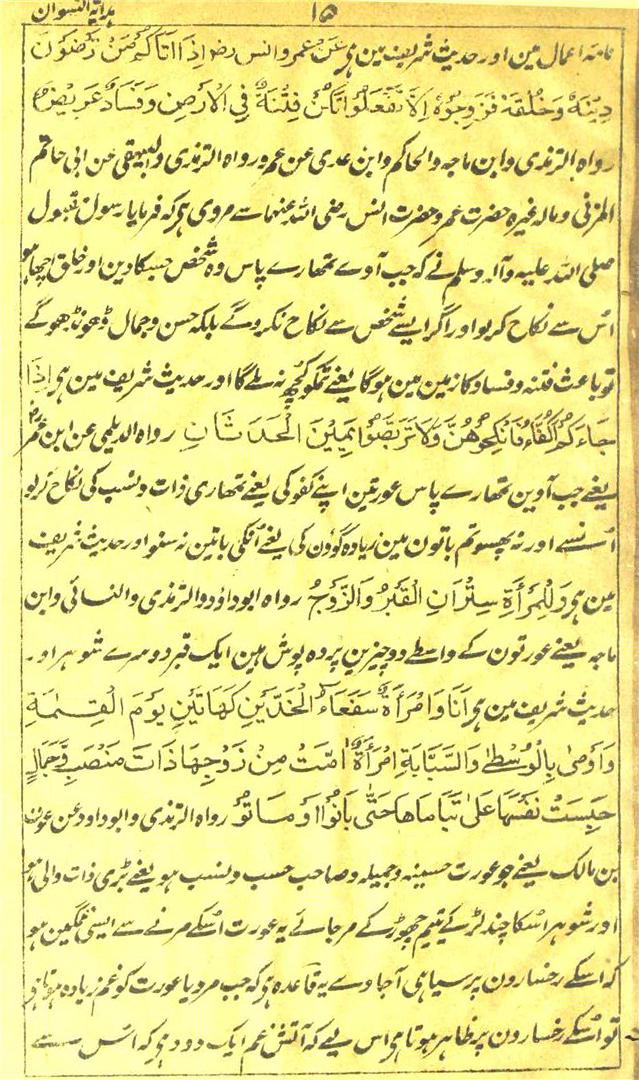 ۱۵ ہدایۃ النسوان
نامۂ اعمال مین اور حدیث شریف مین ہی عَنْ عمر وانس رضؓ اِذَا اَتَاكُمْ مَنْ تَرْضَوْنَ
دِيْنَهُ وَخُلُقَهُ فَزَوِّجُوْهُ اِلَّا تَفْعَلُوْا تَكُنْ فِتْنَةٌ فِي الْاَرْضِ وَفَسَادٌ عَرِيْضٌ
رواہ الترمذی وابن ماجہ والحاکم وابن عدی عن عمرو رواہ الترمذی والبیہقی عن ابی حاتم
المزنی وماله غیرہ حضرت عمر و حضرت انس رضی اللہ عنہما سے مروی ہی کہ فرمایا رسول مقبول
صلی اللہ علیہ وآلہ وسلم نے کہ جب آوے تمھارے پاس وہ شخص جسکا دین اور خلق اچھا ہو
اُس سے نکاح کر لو اور اگر ایسے شخص سے نکاح نکروگے بلکہ حسن وجمال ڈھونڈھوگے
تو باعث فتنہ وفساد کا زمین مین ہوگا یعنے تمکو کچھ نہ ملے گا اور حدیث شریف مین ہی اِذَا
جَاءَكُمُ الْاَكْفَاءُ فَانْكِحُوْهُنَّ وَلَا تَرَبَّصُوْا بِهِنَّ الْحَدَثَانِ رواہ الدیلمی عن ابن عمرؓ
یعنے جب آوین تمھارے پاس عورتین اپنے کفو کی یعنے تمھاری ذات ونسب کی نکاح کرلو
اُنسے اور نہ پھسو تم باتون مین زیادہ گوؤن کی یعنے اُنکی باتین نہ سنو اور حدیث شریف
مین ہی وَلِلْمَرْأَةِ سِتْرَانِ الْقَبْرُ وَالزَّوْجُ رواہ ابوداؤد والترمذی والنسائی وابن
ماجہ یعنے عورتون کے واسطے دو چیزین پردہ پوش ہین ایک قبر دوسرے شوہر اور۔
حدیث شریف مین ہی اَنَا وَامْرَأَةٌ سَفْعَاءُ الْخَدَّيْنِ كَهَاتَيْنِ يَوْمَ الْقِيٰمَةِ
وَاَوْمٰی بِالْوُسْطٰی وَالسَّبَّابَةِ امْرَأَةٌ اٰمَتْ مِنْ زَوْجِهَا ذَاتَ مَنْصَبٍ وَّجَمَالٍ
حَبَسَتْ نَفْسَهَا عَلٰی يَتَامَاهَا حَتّٰی بَانُوْا اَوْ مَاتُوْا رواہ الترمذی وابوداود عن عوف
بن مالک یعنے جو عورت حسینہ وجمیلہ وصاحب حسب ونسب ہو یعنے بڑی ذات والی ہو
اور شوہر اسکا چند لڑکے یتیم چھوڑ کے مرجائے یہ عورت اسکے مرنے سے ایسی غمگین ہو
کہ اسکے رخسارون پر سیاہی آجاوے یہ قاعدہ ہی کہ جب مرد یا عورت کو غم زیادہ ہوتا ہی
تو اُسکے رخسارون پر ظاہر ہوتا ہی اس لیے کہ آتش غم ایک دود ہی کہ اُس سے